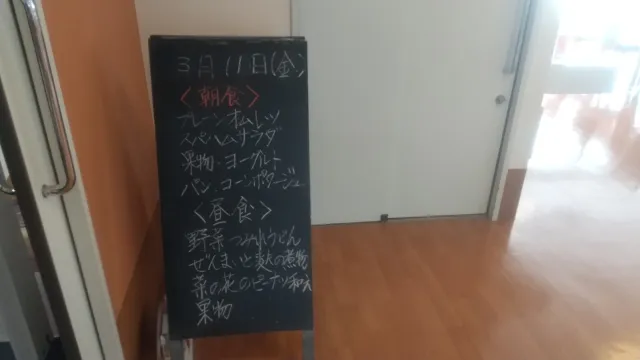 3月11日(金)
〈朝食〉
プレーンオムレツ
スパハムサラダ
果物・ヨーグルト
パン・コーンポタージュ
〈昼食〉
野菜つみれうどん
ぜんまいと の煮物
菜の花のピーナツ和え
果物